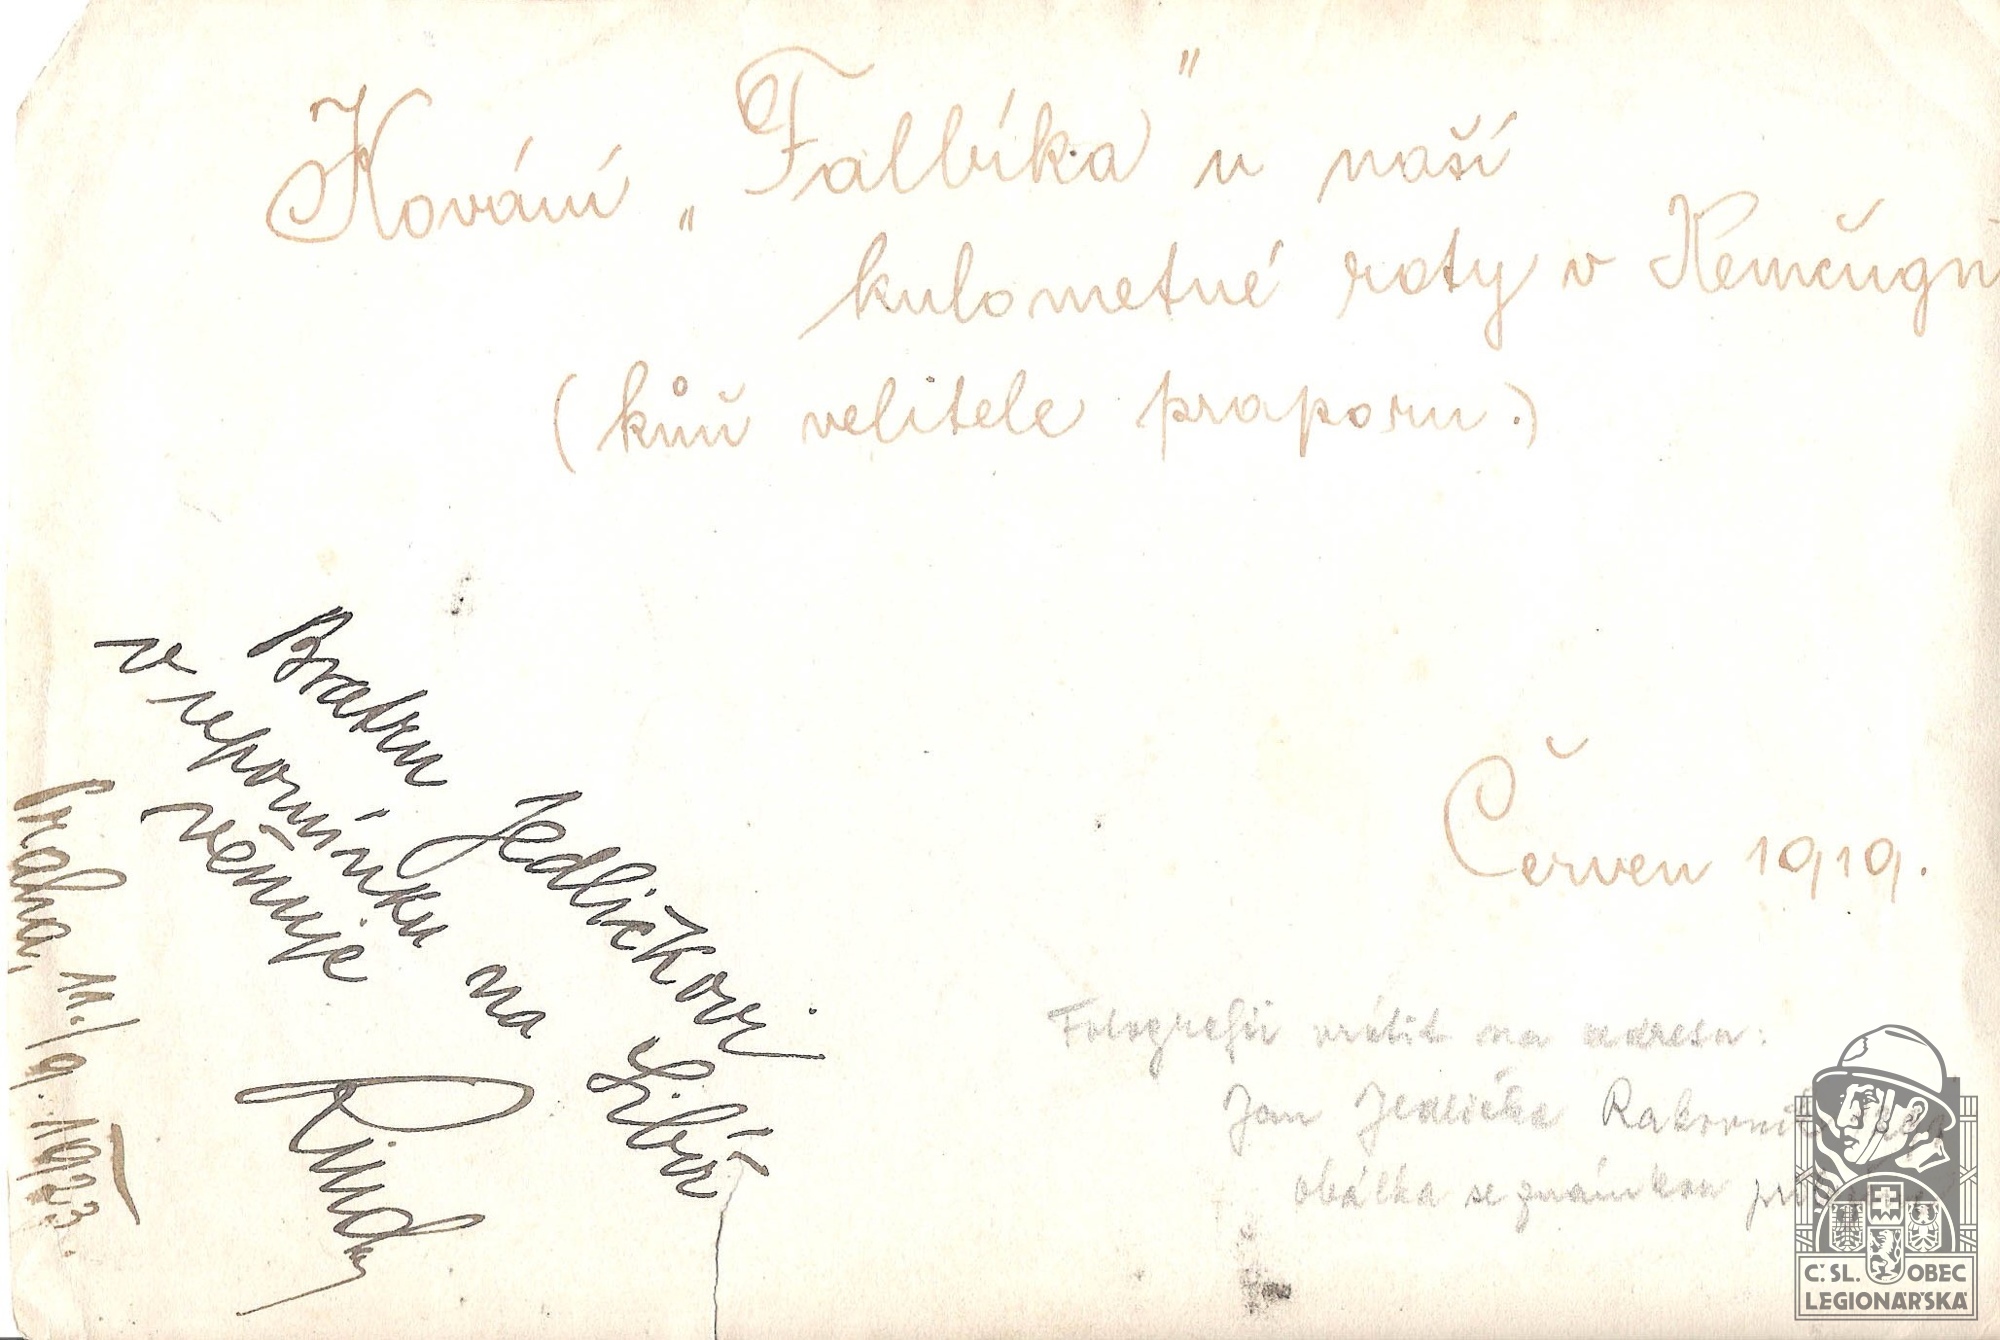 Kování „Falbíka" u naší
kulometné roty v Kemčugu
(kůň velitele praporu.)
Bratru Jedličkovi
v upomínku na Sibíř
věnuje
Praha, 11./9. 1923.
Červen 1919.
Fotografii vrátit na adresu:
Jan Jedlička Rakovník
obálka se známkou
Č. SL. OBEC
LEGIONÁŘSKÁ